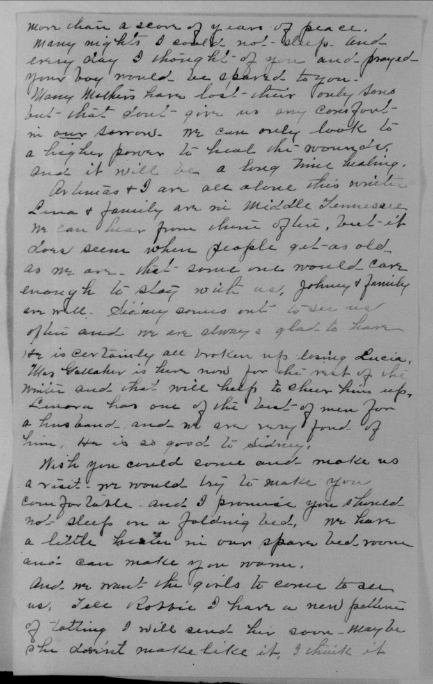 more than a score of years of peace.
Many nights I could not sleep. And
every day I thought of you and prayed
your boy would be spared to you.
Many Mothers have lost their only sons
but that dont give us any comfort
in our sorrow. We can only look to
a higher power to heal the wounds,
and it will be a long time healing.
Artemas & I are all alone this winter
Lena & family are in Middle Tennessee
we can hear from them often, but it
does seem when people get as old
as we are that some one would care
enough to stay with us. Johny & family
are well. Sidney comes out to see us
often and we are always glad to have
He is certainly all broken up losing Lucia.
Mrs is here now for the rest of the
winter and that will help to cheer him up.
Lenora has one of the best of men for
a husband and we are very fond of
him. He is so good to Sidney.
Wish you could come and make us
a visit. We would try to make you
comfortable. And I promise you should
not sleep on a folding bed, we have
a little heater in our spare bed room
and can make you warm.
And we want the girls to come to see
us. Tell Robbie I have a new patern
of tatting I will send her soon. Maybe
she don't make like it, I think it